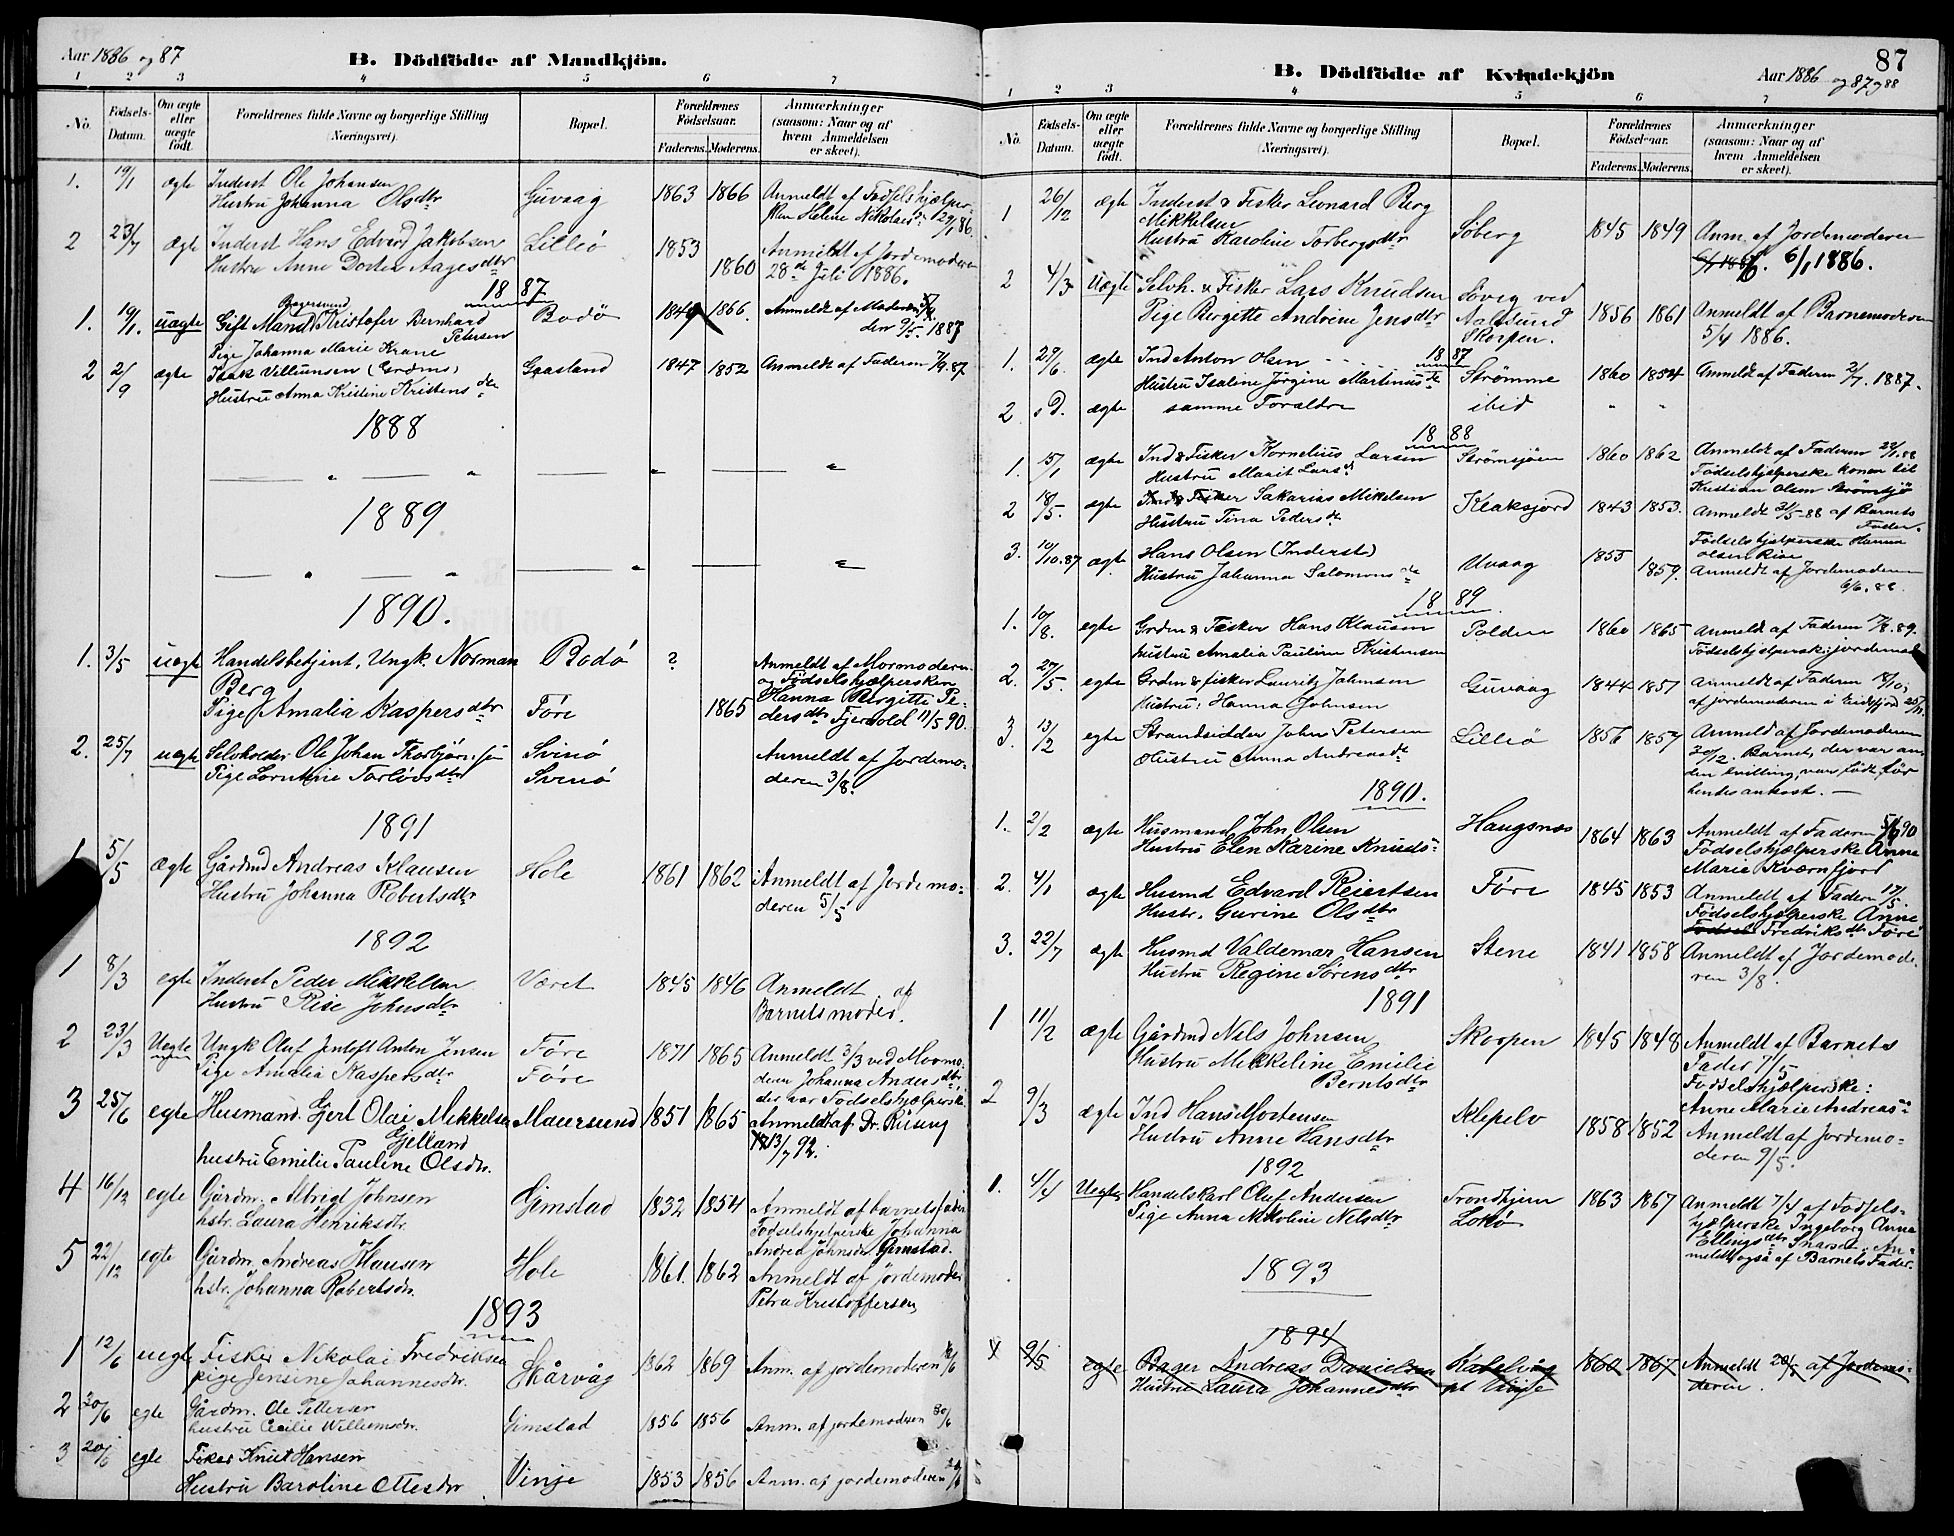 Aar 1886 og 87
B. Dödfödte af Mandkjön.
1 2 3 4 5 6 7
No. Födsels-Datum. Om ægte eller uægte födt. Forældrenes fulde Navne og borgerlige Stilling (Næringsvei). Bopæl. Forældrenes Födselsaar. Faderens. Moderens. Anmærkninger (saasom: Naar og af hvem Anmeldelsen er skeet).
1. 19/1 ægte Inderst Ole Johansen Guvaag 1863 1866 Anmeldt af Fødselshjælper-
Hustru Johanna Olsdtr
2 23/7 ægte Inderst Hans Edvard Jakobsen Lilleö 1853 1860 Anmeldt af Jordemoderen
Hustru Anne Dortea Aagesdtr 28de Juli 1886.
1887
1. 19/1. uægte Gift Mand Kristofer Bernhard Petersen Bodö 1849 1866. Anmeldt af Moderen
Pige Johanna Marie Krane den 9/5. 1887
2 2/9 ægte Isak Villumsen (Grdms) Gaasland 1847 1852 Anmeldt af Faderen 7/9.87.
Hustru Anna Kristine Kristensdtr
1888
— " — " — " — "
1889
— " — " — " — "
1890.
1. 3/5 uægte Handelsbetjent, Ungk. Norman Bodö ? Anmeldt af Mormoderen
Berg og Fødselshjælpersken
Pige Amalia KaspersdtrFöre 1865 Hanna Birgitte Pe-
dersdtr Fjervold 11/5 90.
2. 25/7 uægte Selvholder Ole Johan Thorbjörnsen Svinö Anmeldt af Jordemo-
Pige Lorntine Torlövsdtr Svinö deren 3/8.
1891
1 5/5 ægte Gårdmd Andreas Klausen Hole 1861 1862 Anmeldt af Jordemo-
Hustru Johanna Robertsdtr deren 5/5
1892
1 8/3 egte Inderst Peder Mikkelsen Været 1845 1846 Anmeldt af
Hustru Rise Johnsdtr Barnets moder.
2 23/3 Uegte Ungk Oluf Jentoft Anton Jensen Före 1871 1865 Anmeldt 3/3 ved Mormo-
Pige Amalia Kaspersdtr Före deren Johanna Andersdtr,
der var Fødselshjælperske
3 25/6 egte Husmand. Gjert Olai Mikkelsen Maursund 1851 1865 Anmeldt af Dr. Rüsing
Gjelland 13/7 92.
hustru Emilie Pauline Olsdr.
4 16/12 egte Gårdm. Albrigt Johnsen Gimstad 1832 1854 Anmeldt af barnets fader
hstr. Laura Henriksdtr. Fødselshjelperske Johanna
Andrea Johnsdr Gimstad.
5 22/12 egte Gårdm. Andreas Klausen Hole 1861. 1862 Anmeldt af jordemoder
hstr. Johanna Robertsdr. Petra Kristoffersen
1893
1 12/6 uegte Fisker Nikolai Fredriksen Skårvåg 1862 1869 Anm. af jordemoderen
pige Jensine Johannesdr.
2 20/6 egte Gårdm. Ole Pettersen Gimstad 1856 1856 Anm. af jordemoderen 30/6
hustru Cecilie Willumsdr.
3 20/6 egte Fisker Knut Hansen Vinje 1853 1856 Anm. af jordemoderen
Hustru Baroline Ottesdtr
87
B. Dödfödte af Kvindekjön
Aar 1886 og 87 og 88
1 2 3 4 5 6 7
No. Födsels-Datum. Om ægte eller uægte födt. Forældrenes fulde Navne og borgerlige Stilling (Næringsvei). Bopæl. Forældrenes Födselsaar. Faderens. Moderens. Anmærkninger (saasom: Naar og af hvem Anmeldelsen er skeet).
1 26/12 ægte Inderst & Fisker Leonard Berg Söberg 1845 1849 Anm. af Jordemoderen
Mikkelsen 6/1 1886.
Hustru Karoline Torbergsdtr
2 4/3 Uægte Selvh. & Fisker Lars Knudsen Sövig ved 1856 1861 Anmeldt af Barnemoderen
Pige Birgitte Andrine Jensdtr Aalesund 5/4 1886.
Skorpen.
1887
1. 29/6. ægte Ind Anton Olsen Strömme 1860 1854 Anmeldt af Faderen 2/7. 1887.
Hustru Isaline Jörgine Martinusdtr
2 s D. ægte samme Forældre ibid " "
1888
1. 5/1 ægte Ind & Fisker Kornelius Larsen Strömsjöen 1860 1862 Anmeldt af Faderen 22/1.88
Hustru Marit Larsdtr Fødselshjælperske konen til
Kristian Olsen Strömsjö
2 18/5. ægte Ind & Fisker Sakarias Mikelsen Klaksjord 1843 1853. Anmeldt 31/5-88 af Barnets
Hustru Tina Pedersdtr Fader.
Fødselshjælperske Hanna
3. 10/10.87 ægte Hans Olsen (Inderst) Uvaag 1855 1859. Anmeldt af Jordemoderen
Hustru Johanna Salomonsdtr 6/6.88.
1889
1. 10/8. egte Grdm & Fisker Hans Klausen Polden 1860 1865 Anmeldt af Faderen 17/8.89.
hustru Amalia Pauline Kristensen Födselshjelpersk: jordemod
2. 27/5. egte Grdm & fisker Lauritz Johnsen Guvaag 1844 1851 Anmeldt af Faderen 18/10;
Hustru: Hanna Johnsen af jordemoderen i Eidsfjord
3 13/12 egte Strandsidder John Petersen Lilleö 1856 1857 Anmeld af Jordemoderen
Hustru Anna Andreasdtr 30/12. Barnet, der var an-
den tvilling, var födt för
hendes ankost. —
1890.
1. 2/2 ægte Husmand John Olsen Haugsnæs 1864 1863 Anmeldt af Faderen
Hustru Elen Karine Knuds: Födselshjælperske Anne
Marie Kværnfjord
2. 4/1 ægte Husmd Edvard Reiertsen Före 1845 1853 Anmeldt af Faderen 17/5.
Hustr. Gurine Olsdtr Födselshjælperske Anne
Fredriksdtr Före
3. 22/7 ægte Husmd Valdemar Hansen Stene 1841 1858 Anmeldt af Jordemode-
Hustru Regine Sörensdtr ren 3/8.
1891
1 11/2 ægte Gårdmd Nils Johnsen Skorpen 1845 1848 Anmeldt af Barnets
Hustru Mikkeline Emilie Fader 7/5
Berntsdtr Fødselshjælperske:
Anne Marie Andreas:
2 9/3 ægte Ind Hans Mortensen Klepelv 1858 1852 Anmeldt af Jordemo-
Hustru Anne Hansdtr deren 9/5.
1892
1. 4/4 Uegte Handelskarl Oluf Andersen Trondhjem 1863 1867 Anmeldt 7/4 af Fødsels-
Pige Anna Nikoline Nelsdtr Lokö hjælperske Ingeborg Anna
Ellingsdtr Snarset. An-
meldt også af Barnets Fader.
1893
1894
1 9/5 egte Bager Andreas Danielsen 1860 1867 Anmeldt 20/5 af Jordemo-
Hustru Laura Johannesdtr pt Vinje deren.